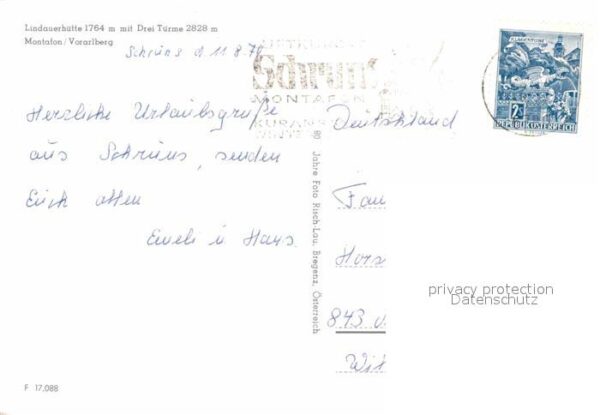 Lindauerhütte 1764 m mit Drei Türme 2828 m
Montafon/Vorarlberg
Schruns d. 11.8.70
LUFTKURORT
Schruns
MONTAFON
KURANS
WINTER
KLAGENFURT
2 S
REPUBLIK ÖSTERREICH
Herzliche Urlaubsgrüße
aus Schruns, senden
Euch allen
Eweli u Hans
Jahre Foto Risch-Lau, Bregenz, Österreich
Deutschland
Fam
Hors
843
Wit
privacy protection
Datenschutz
F 17.088